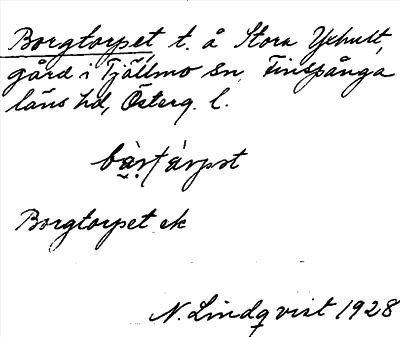 Borgtorpet t. å Stora Ykhult,
gård i Tjällmo sn, Finspånga
läns hd, Österg. l.
Borgtorpet ek
N. Lindqvist 1928